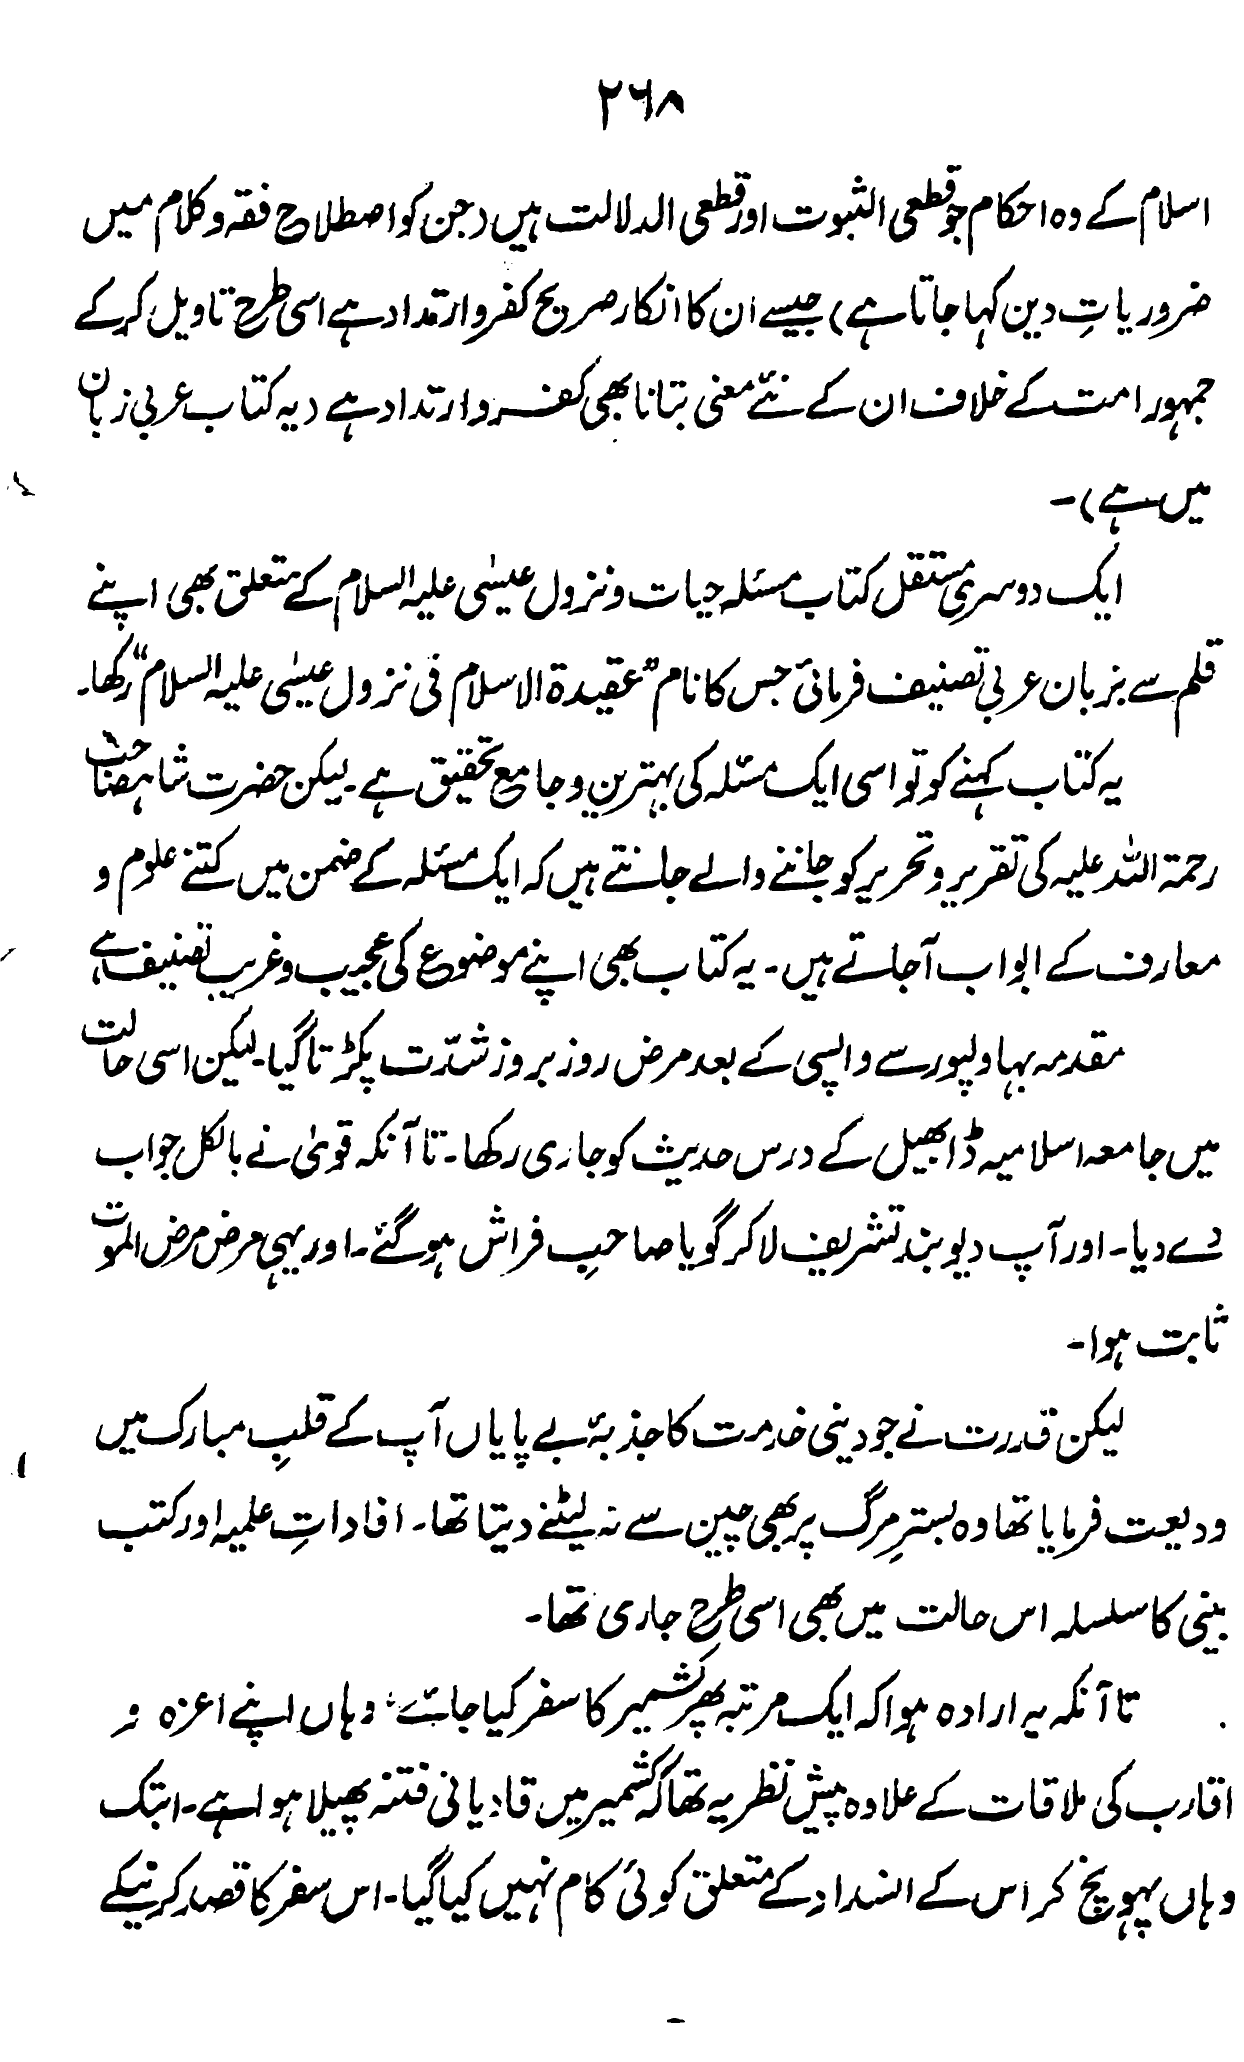 ۲۶۸
اسلام کے وہ احکام جو قطعی الثبوت اور قطعی الدلالت ہیں (جن کو اصطلاح فقہ و کلام میں
ضروریاتِ دین کہا جاتا ہے) جیسے ان کا انکار صریح کفر و ارتداد ہے اسی طرح تاویل کر کے
جمہور امت کے خلاف ان کے نئے معنی بتانا بھی کفر و ارتداد ہے (یہ کتاب عربی زبان
میں ہے)۔
ایک دوسری مستقل کتاب مسئلہ حیات و نزول عیسٰی علیہ السلام کے متعلق بھی اپنے
قلم سے بزبان عربی تصنیف فرمائی جس کا نام "عقیدۃ الاسلام فی نزول عیسٰی علیہ السلام" رکھا۔
یہ کتاب کہنے کو تو اسی ایک مسئلہ کی بہترین و جامع تحقیق ہے۔ لیکن حضرت شاہصاحب
رحمۃ اللہ علیہ کی تقریر و تحریر کو جاننے والے جانتے ہیں کہ ایک مسئلہ کے ضمن میں کتنے علوم و
معارف کے ابواب آجاتے ہیں۔ یہ کتاب بھی اپنے موضوع کی عجیب و غریب تصنیف ہے
مقدمہ بہاولپور سے واپسی کے بعد مرض روز بروز شدّت پکڑتا گیا۔ لیکن اسی حالت
میں جامعہ اسلامیہ ڈابھیل کے درس حدیث کو جاری رکھا۔ تا آنکہ قویٰ نے بالکل جواب
دے دیا۔ اور آپ دیوبند تشریف لا کر گویا صاحبِ فراش ہو گئے۔ اور یہی مرض مرض الموت
ثابت ہوا۔
لیکن قدرت نے جو دینی خدمت کا جذبۂ بے پایاں آپ کے قلبِ مبارک میں
ودیعت فرمایا تھا وہ بسترِ مرگ پر بھی چین سے نہ لیٹنے دیتا تھا۔ افاداتِ علمیہ اور کتب
بینی کا سلسلہ اس حالت میں بھی اسی طرح جاری تھا۔
تا آنکہ یہ ارادہ ہوا کہ ایک مرتبہ پھر کشمیر کا سفر کیا جائے، وہاں اپنے اعزہ و
اقارب کی ملاقات کے علاوہ پیش نظر یہ تھا کہ کشمیر میں قادیانی فتنہ پھیلا ہوا ہے۔ ابتک
وہاں پہونچ کر اس کے انسداد کے متعلق کوئی کام نہیں کیا گیا۔ اس سفر کا قصد کرنیکے